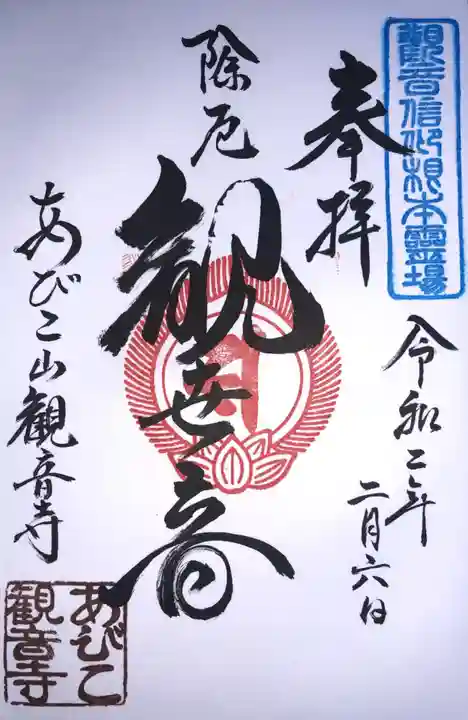 観音信仰根本霊場
奉拝
令和二年
二月六日
除厄
観世音
あびこ山観音寺
あびこ
観音寺